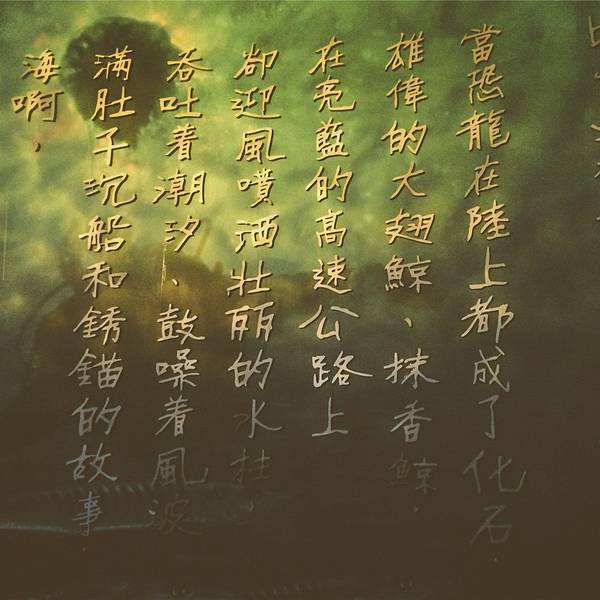 當恐龍在陸上都成了化石，
雄偉的大翅鯨、抹香鯨，
在亮藍的高速公路上
卻迎風噴洒壯丽的水柱，
吞吐着潮汐、鼓噪着風波
滿肚子沉船和銹錨的故事
海啊，